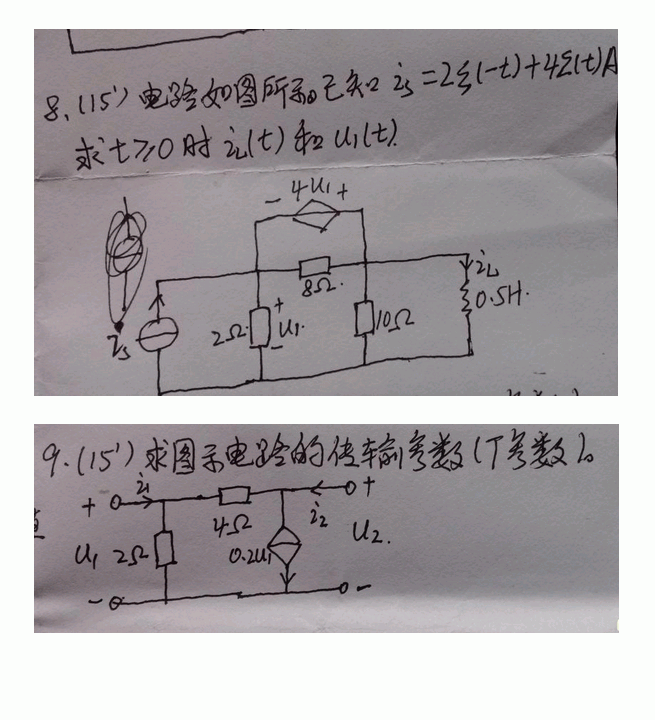 8.(15')电路如图所示。已知 is=2ξ(-t)+4ξ(t)A
求t≥0时 iL(t) 和 u1(t).
- 4u1 +
8Ω.
iL
is
2Ω.
+
u1.
-
10Ω
0.5H.
9.(15')求图示电路的传输参数(T参数)。
+
i1
4Ω
i2
+
u1
2Ω
0.2u1
u2.
-
-